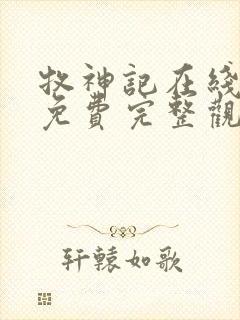 牧神記在綫
免費完整觀
軒轅如歌